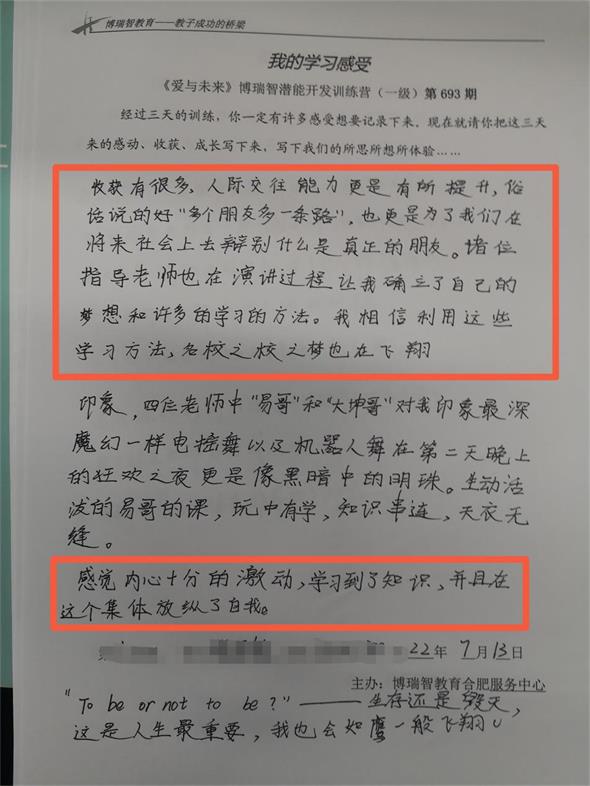 博瑞智教育——教子成功的桥梁
我的学习感受
《爱与未来》博瑞智潜能开发训练营（一级）第 693 期
经过三天的训练，你一定有许多感受想要记录下来，现在就请你把这三天
来的感动、收获、成长写下来，写下我们的所思所想所体验……
收获有很多，人际交往能力更是有所提升，俗
话说的好"多个朋友多一条路"，也更是为了我们在
将来社会上去辩别什么是真正的朋友。诸位
指导老师也在演讲过程让我确立了自己的
梦想和许多的学习的方法。我相信利用这些
学习方法，名校之校之梦也在飞翔
印象，四位老师中"易哥"和"大坤哥"对我印象最深
魔幻一样电摇舞以及机器人舞在第二天晚上
的狂欢之夜更是像黑暗中的明珠。生动活
泼的易哥的课，玩中有学，知识串连，天衣无
缝。
感觉内心十分的激动，学习到了知识，并且在
这个集体放纵了自我。
22年 7月13日
主办：博瑞智教育合肥服务中心
"To be or not to be?"——生存还是毁灭，
这是人生最重要，我也会如鹰一般飞翔